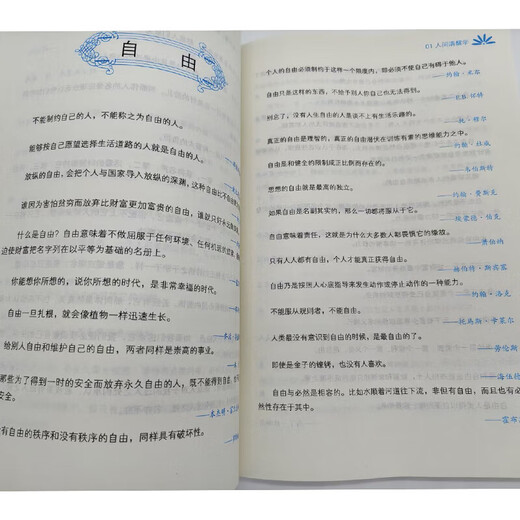 自由
不能制约自己的人，不能称之为自由的人。
能够按自己愿望选择生活道路的人就是自由的人。
放纵的自由，会把个人与国家导入放纵的深渊，这种自由比不自由
谁因为害怕贫穷而放弃比财富更加富贵的自由，谁就只好永远
什么是自由？自由意味着不做屈服于任何环境、任何机运的
迫使财富把名字列在以平等为基础的名册上。
你能想你所想的，说你所想的时代，是非常幸福的时代。
自由一旦扎根，就会像植物一样迅速生长。
给别人自由和维护自己的自由，两者同样是崇高的事业。
那些为了得到一时的安全而放弃永久自由的人，既不能得到自由，
安全。
没有自由的秩序和没有秩序的自由，同样具有破坏性。
01 人间清醒录
个人的自由必须制约于这样一个限度内，即必须不使自己有碍于他人。
——约翰·米勒
自由只是这样的东西，不给予别人你自己也无法得到。
别忘了，没有人生自由的人是谈不上有生活乐趣的。
真正的自由是理智的，真正的自由潜伏在训练有素的思维能力之中。
——约翰·杜威
自由是和健全的限制成正比例而存在的。
——韦伯斯特
思想的自由就是最高的独立。
——约翰·费斯克
如果自由是名副其实的，那么一切都将服从于它。
——埃蒙德·伯克
自由意味着责任，这就是为什么大多数人都畏惧它的缘故。
——萧伯纳
只有人人都有自由，个人才能真正获得自由。
——赫伯特·斯宾塞
自由乃是按照人心底指导来发生动作或停止动作的一种能力。
——约翰·洛克
不能服从规则者，不能自由。
——托马斯·卡莱尔
人类最没有意识到自由的时候，是最自由的了。
——劳伦斯
即使是金子的镣铐，也没有人喜欢。
——海伍德
自由与必然是相容的。比如水顺着河道往下流，非但有自由，而且也有必
然性存在于其中。
——霍布斯